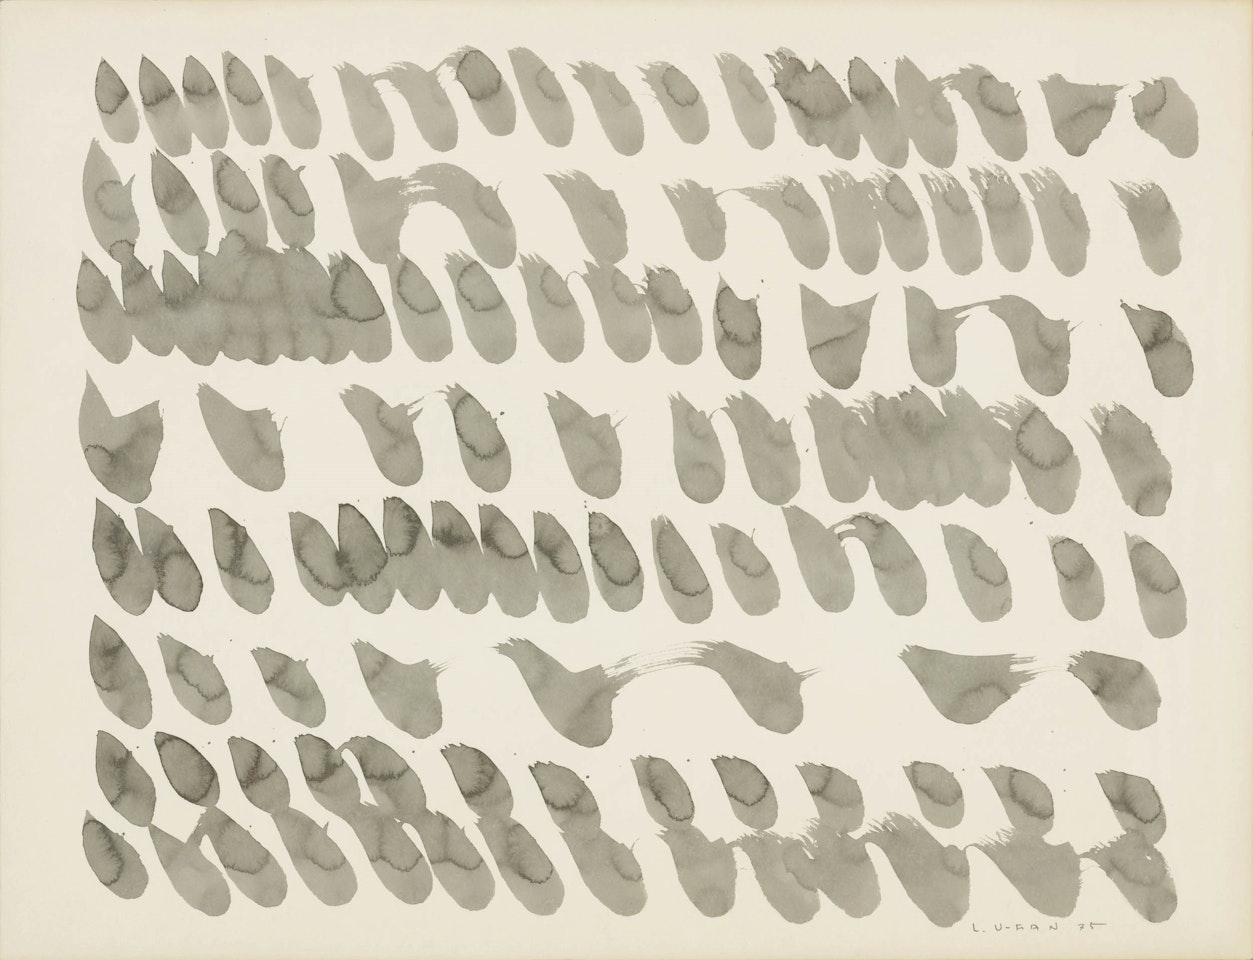 L. U-FAN 75